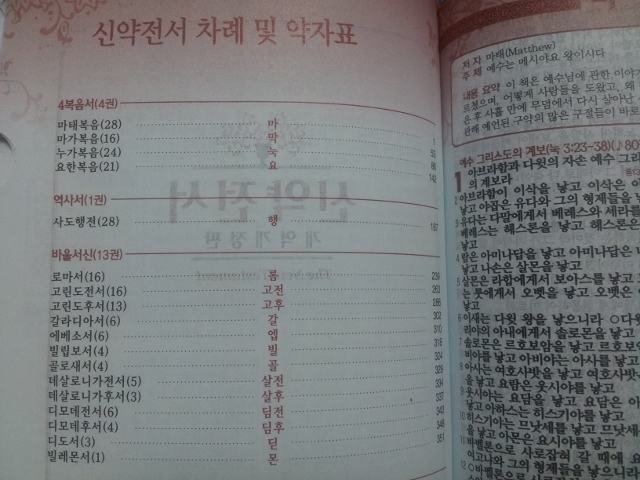 신약전서 차례 및 약자표
4복음서(4권)
마태복음(28) 마 1
마가복음(16) 막 52
누가복음(24) 눅 86
요한복음(21) 요 142
역사서(1권)
사도행전(28) 행 187
바울서신(13권)
로마서(16) 롬 239
고린도전서(16) 고전 263
고린도후서(13) 고후 286
갈라디아서(6) 갈 302
에베소서(6) 엡 310
빌립보서(4) 빌 318
골로새서(4) 골 324
데살로니가전서(5) 살전 329
데살로니가후서(3) 살후 334
디모데전서(6) 딤전 337
디모데후서(4) 딤후 343
디도서(3) 딛 348
빌레몬서(1) 몬 351
저 자 마태(Matthew)
주 제 예수는 메시야요 왕이시다
내용 요약 이 책은 예수님에 관한 이야기
르쳤으며, 어떻게 사람들을 도왔고, 왜
은 후 사흘 만에 무덤에서 다시 살아난
관해 예언된 구약의 많은 구절들이 바로
예수 그리스도의 계보(눅 3:23-38)
1 아브라함과 다윗의 자손 예수 그리
의 계보라
2 아브라함이 이삭을 낳고 이삭은
낳고 야곱은 유다와 그의 형제들을 낳
유다는 다말에게서 베레스와 세라를
베레스는 헤스론을 낳고 헤스론은
낳고
람은 아미나답을 낳고 아미나답은 나
낳고 나손은 살몬을 낳고
살몬은 라합에게서 보아스를 낳고
는 룻에게서 오벳을 낳고 오벳은
낳고
6 이새는 다윗 왕을 낳으니라 ○다윗
리야의 아내에게서 솔로몬을 낳고
7 솔로몬은 르호보암을 낳고 르호보암
비야를 낳고 아비야는 아사를 낳고
8 아사는 여호사밧을 낳고 여호사밧
을 낳고 요람은 웃시야를 낳고
9 웃시야는 요담을 낳고 요담은 아
낳고 아하스는 히스기야를 낳고
10 히스기야는 므낫세를 낳고 므낫세
을 낳고 아몬은 요시야를 낳고
11 바벨론으로 사로잡혀 갈 때에 요
여고냐와 그의 형제들을 낳으니라
12 ○바벨론으로